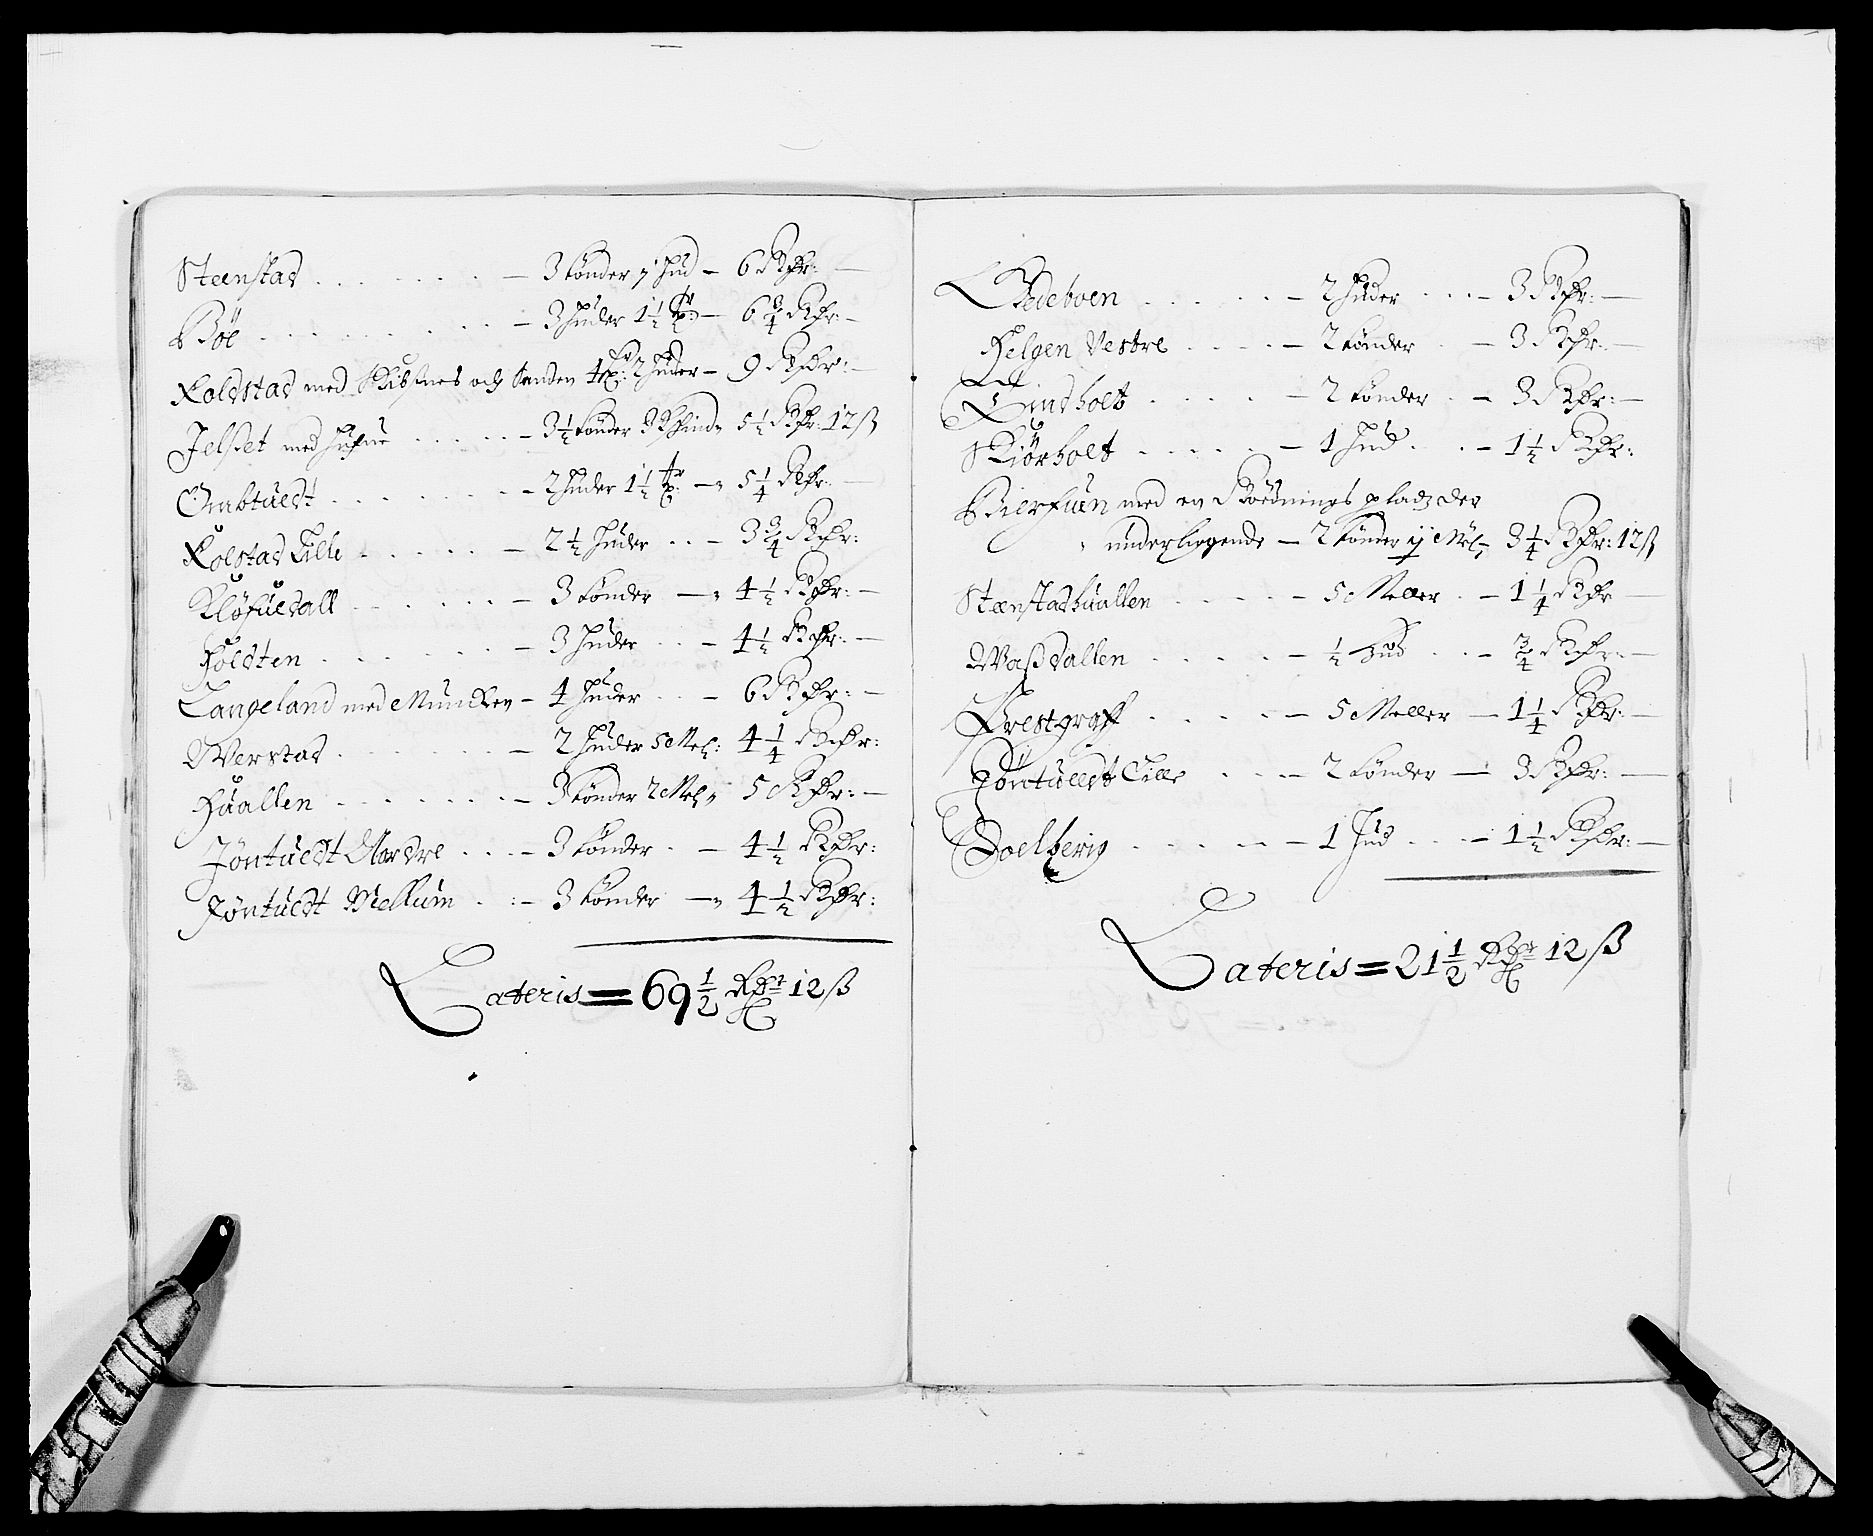 Steenstad - 3 tønder j hud - 6 Rdr: -
Bøe - 3 huder 1½ - 6¾ Rdr: -
Koldstad med Skibsnes och Sanden 2 huder - 9 Rdr: -
Jelset med - 3½ tønder 3 Skind 5½ Rdr: 12 ß
Ombtuedt - 2 huder 1½ - 5¼ Rdr: -
Kolstad Lille - 2½ huder - 3¾ Rdr:
Kløfuedall - 3 tønder - 4½ Rdr: -
Holdten - 3 huder - 4½ Rdr: -
Langeland med Muncken - 4 huder - 6 Rdr: -
Werstad - 2 huder 5 Mel: 4¼ Rdr:
Huallen - 3 tønder 2 Mel: 5 Rdr: -
Jøntuedt Nordre - 3 tønder - 4½ Rdr:
Jøntuedt Mellum - 3 tønder - 4½ Rdr:
Lateris = 69½ Rdr 12 ß
Bedeboen - 2 huder - 3 Rdr: -
Helgen Vestre - 2 tønder - 3 Rdr: -
Lindholt - 2 tønder - 3 Rdr: -
Skiørholt - 1 hud - 1½ Rdr:
med en Rødnings pladz der
underligende - 2 tønder ij Mel: 3¼ Rdr: 12 ß
Stænstadhuallen - 5 Meller - 1¼ Rdr -
Waßdallen - ½ hud - ¾ Rdr: -
Prestgraff - 5 Meller - 1¼ Rdr: -
Jøntuedt Lille - 2 tønder - 3 Rdr: -
Doelberig - 1 hud - 1½ Rdr: -
Lateris = 21½ Rdr 12 ß